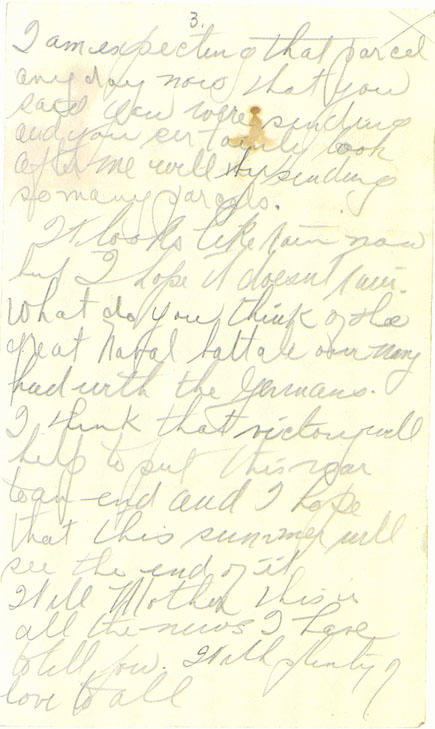 3.
I am expecting that parcel
any day now that you
said you were sending
and you certainly look
after me well by sending
so many parcels.
It looks like rain now
but I hope it doesnt rain.
What do you think of the
great Naval battle our navy
had with the Germans.
I think that victory will
help to put this war
to an end and I hope
that this summer will
see the end of it
Well Mother this is
all the news I have
to tell you. With plenty of
love to all